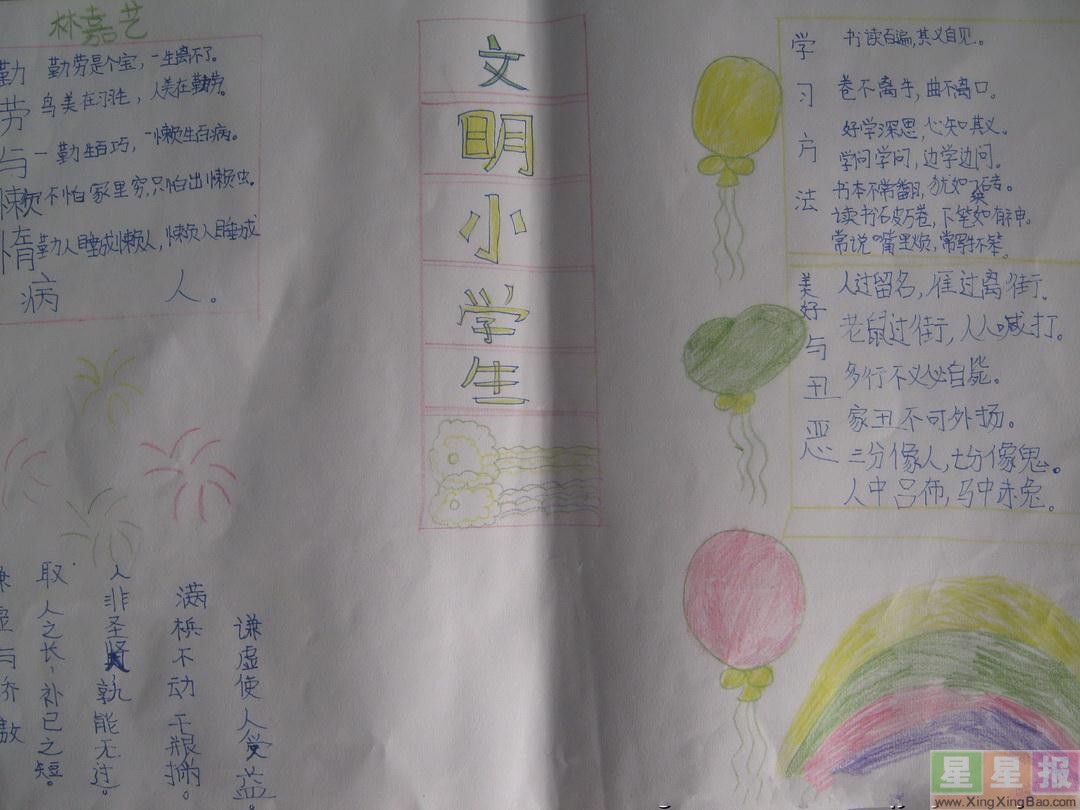 林嘉艺
勤劳与懒惰
勤劳是个宝，一生离不了。
鸟美在羽毛，人美在勤劳。
一勤生百巧，一懒生百病。
不怕家里穷，只怕出懒虫。
勤人睡成懒人，懒人睡成
病人。
文明小学生
学习方法
书读百遍，其义自见。
卷不离手，曲不离口。
好学深思，心知其义。
学问学问，边学边问。
书本不常翻，犹如一块砖。
读书破万卷，下笔如有神。
常说嘴里顺，常写手不笨。
美好与丑恶
人过留名，雁过离街。
老鼠过街，人人喊打。
多行不义必自毙。
家丑不可外扬。
三分像人，七分像鬼。
人中吕布，马中赤兔。
谦虚与骄傲
取人之长，补已之短。
人非圣贤，孰能无过。
满
不动
谦虚使人受益。
星星报
www.XingXingBao.com